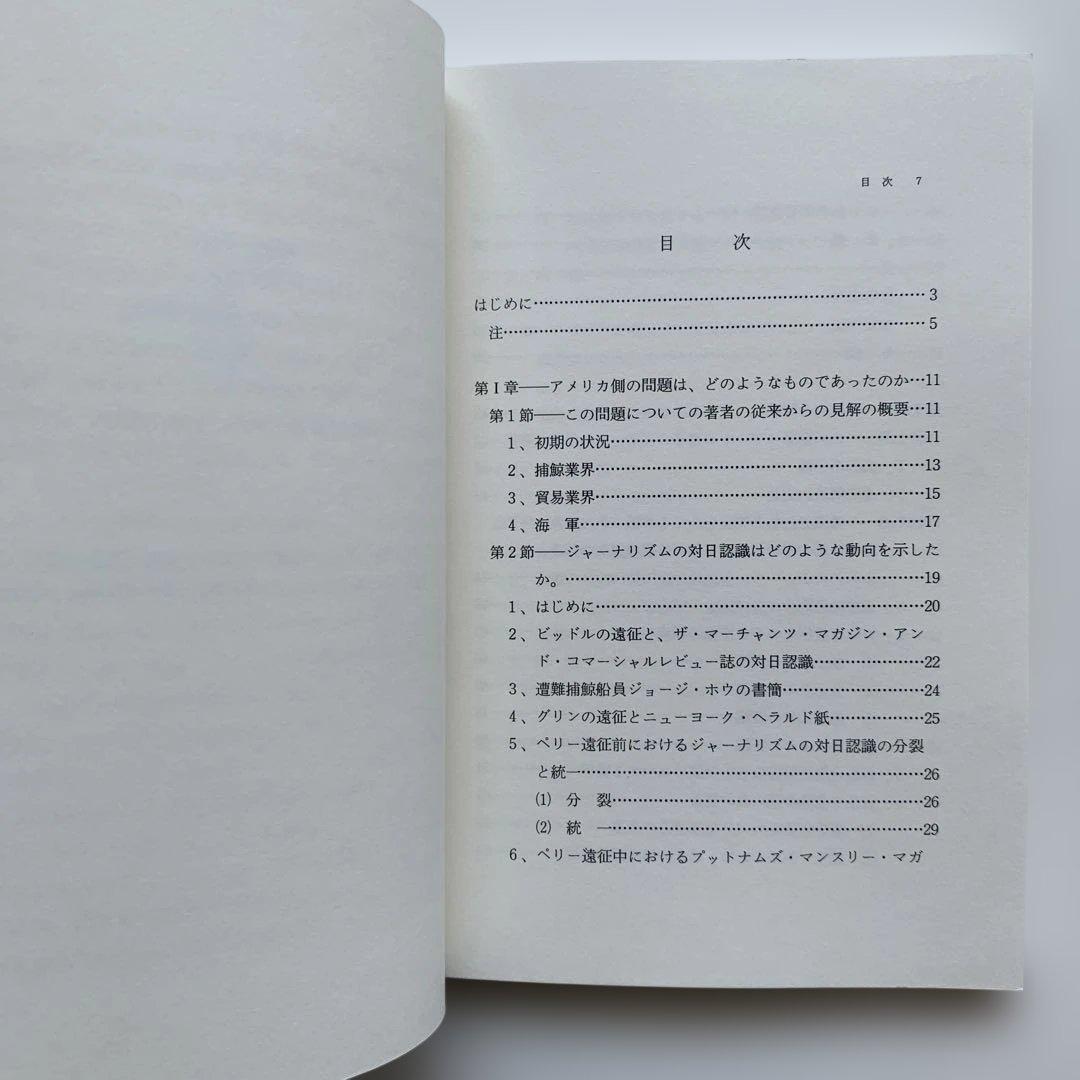 目 次 7
目 次
はじめに…………………………………………………………………3
注…………………………………………………………………………5
第Ⅰ章――アメリカ側の問題は、どのようなものであったのか…11
第1節――この問題についての著者の従来からの見解の概要…11
1、初期の状況……………………………………………………11
2、捕鯨業界………………………………………………………13
3、貿易業界………………………………………………………15
4、海 軍…………………………………………………………17
第2節――ジャーナリズムの対日認識はどのような動向を示した
か。……………………………………………………………19
1、はじめに………………………………………………………20
2、ビッドルの遠征と、ザ・マーチャンツ・マガジン・アン
ド・コマーシャルレビュー誌の対日認識…………………22
3、遭難捕鯨船員ジョージ・ホウの書簡………………………24
4、グリンの遠征とニューヨーク・ヘラルド紙………………25
5、ペリー遠征前におけるジャーナリズムの対日認識の分裂
と統一…………………………………………………………26
⑴ 分 裂……………………………………………………26
⑵ 統 一……………………………………………………29
6、ペリー遠征中におけるプットナムズ・マンスリー・マガ